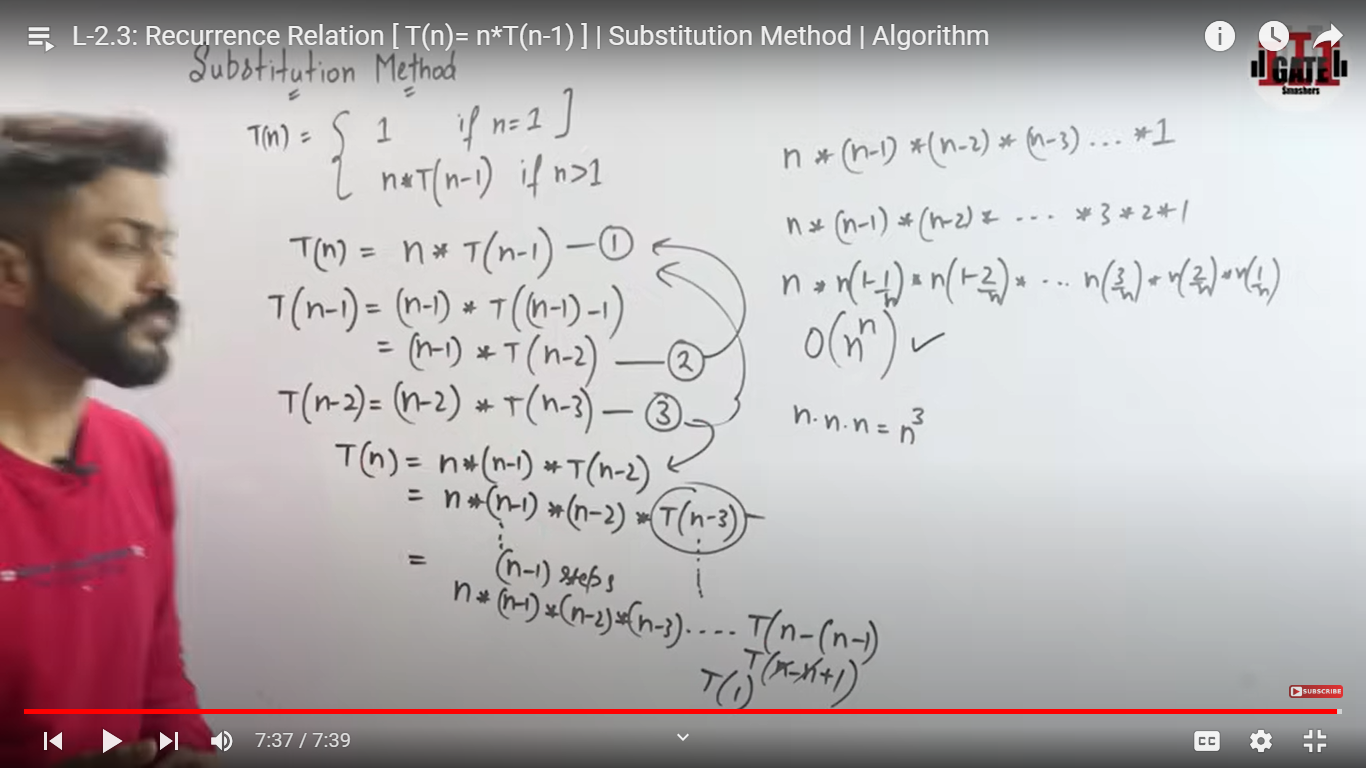 L-2.3: Recurrence Relation [ T(n)= n*T(n-1) ] | Substitution Method | Algorithm
GATE
Smashers
Substitution Method
T(n) = { 1 if n=1 ]
n*T(n-1) if n>1
T(n) = n * T(n-1) — ①
T(n-1) = (n-1) * T((n-1)-1)
= (n-1) * T(n-2) — ②
T(n-2) = (n-2) * T(n-3) — ③
T(n) = n*(n-1) * T(n-2)
= n*(n-1) *(n-2) * T(n-3)
=
(n-1) steps
n*(n-1)*(n-2)*(n-3).... T(n-(n-1)
T(n-n+1)
T(1)
n * (n-1) *(n-2) * (n-3) ... *1
n * (n-1) *(n-2) * ... *3*2*1
n * n(1-1/n) * n(1-2/n) * ... n(3/n) * n(2/n) * n(1/n)
O(n^n) ✓
n.n.n = n^3
SUBSCRIBE
7:37 / 7:39
CC